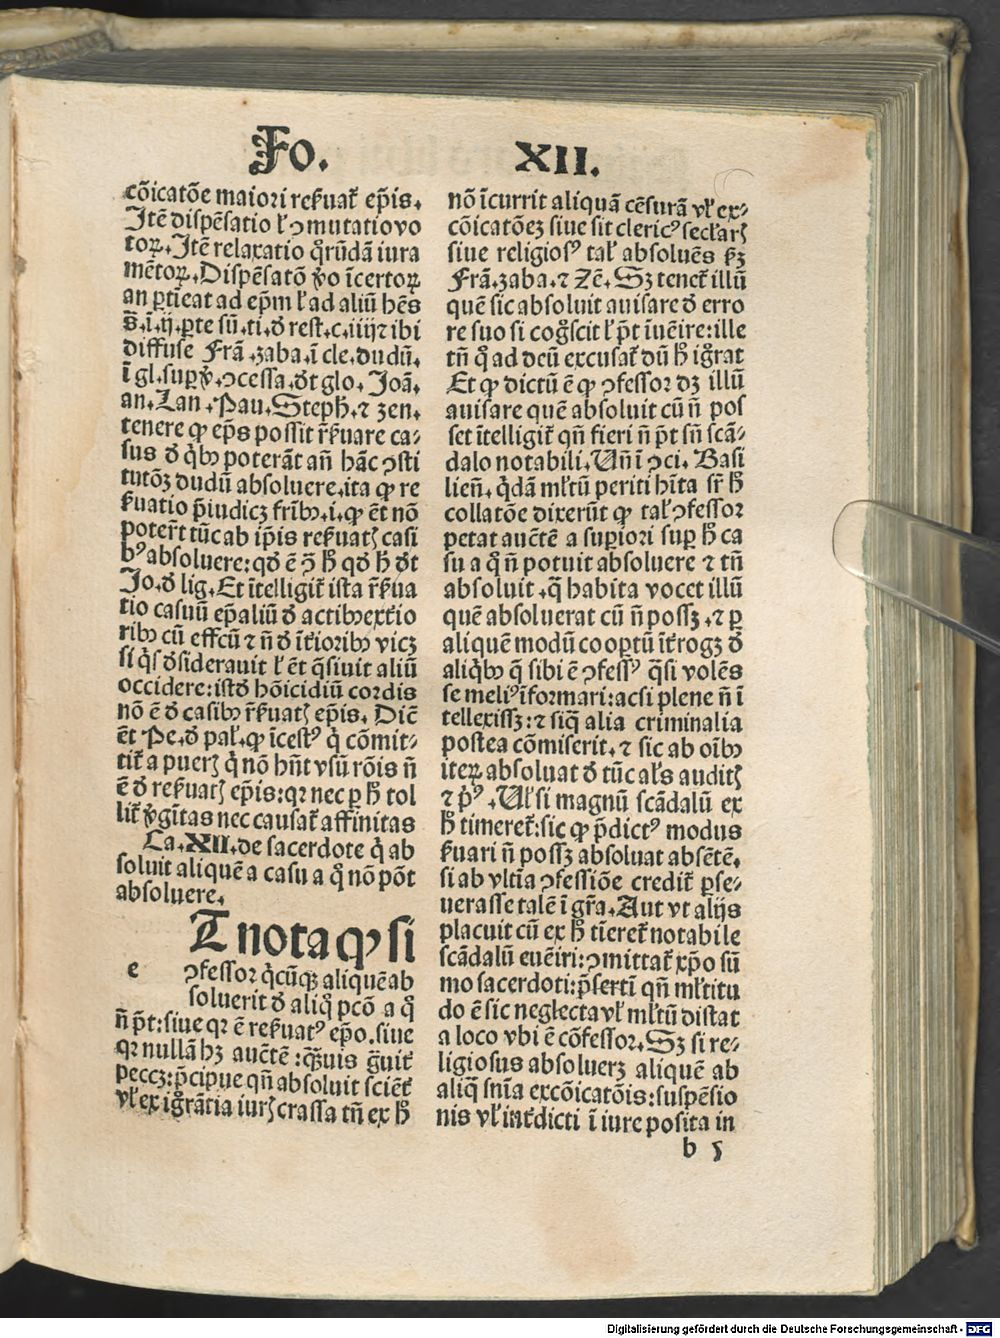 Fo. XII.
cōicatōe maiori reẜuat᷑ ep̄is.
Itē dispēsatio ł ꝯmutatio vo
toꝝ. Itē relaxatio q̊rūdā iura
mētoꝝ. Dispēsatō ꝟo īcertoꝝ
an ꝑtīeat ad ep̄m ł ad aliū hēs
s̄. ī. ij. ꝑte sū. ti. ð rest. c. iiij ⁊ ibi
diffuse Frā. zaba. ī cle. dudū.
ī gl. suꝑ ꝟ. ꝯcessa. ðt glo. Joā.
an. Lan. Pau. Steph. ⁊ zen.
tenere ꝙ ep̄s possit r̄ẜuare ca⸗
sus ð q̇bꝰ poterāt an̄ hāc ꝯsti
tutōꝫ dudū absoluere. ita ꝙ re
ẜuatio p̄iudicꝫ frībꝰ. i. ꝙ ēt nō
poter̄t tūc ab ip̄is reẜuatꝭ casi
bꝰ absoluere: qð ē ꝯ̄ ħ qð ħ ðt
Jo. ð lig. Et ītelligit᷑ ista r̄ẜua
tio casuū ep̄aliū ð actibꝰ ext᷑io
ribꝰ cū effcū ⁊ n̄ ð īt᷑ioribꝰ vicꝫ
si q̇s ðsiderauit ł ēt q̄siuit aliū
occidere: istð hōicidiū cordis
nō ē ð casibꝰ r̄ẜuatꝭ ep̄is. Dic̄
ēt Pe. ð pal. ꝙ īcestꝰ q̇ cōmit⸗
tit᷑ a puerꝭ q̇ nō hn̄t vsū rōis n̄
ē ð reẜuatꝭ ep̄is: qꝛ nec ꝑ ħ tol
lit᷑ ꝟgītas nec causat᷑ affinitas
Ca. XII. de sacerdote q̇ ab
soluit aliquē a casu a q̊ nō pōt
absoluere.
e
T nota ꝙ si
ꝯfessor q̇cūqꝫ aliquē ab
soluerit ð aliq̊ pcō a q̊
n̄ p̄t: siue qꝛ ē reẜuatꝰ ep̄o. siue
qꝛ nullā hꝫ auc̄tē: q̄uis ḡuit᷑
peccꝫ: p̄cipue qn̄ absoluit sciēt᷑
vł ex igr̄atia iurꝭ crassa tn̄ ex ħ
nō īcurrit aliquā cēsurā vł ex⸗
cōicatōeꝫ siue sit clericꝰ secl̄arꝭ
siue religiosꝰ tał absoluēs ẜꝫ
Frā. zaba. ⁊ Zē. Sꝫ tenet᷑ illū
quē sic absoluit auisare ð erro
re suo si cog̊scit ł p̄t īuēire: ille
tn̄ q̊ ad deū excusat᷑ dū ħ igr̄at
Et ꝙ dictū ē ꝙ ꝯfessor dꝫ illū
auisare quē absoluit cū n̄ pos
set ītelligit᷑ qn̄ fieri n̄ p̄t sn̄ scā⸗
dalo notabili. Vn̄ ī ꝯci. Basi
lien̄. q̇dā mł̄tū periti hīta sr̄ ħ
collatōe dixerūt ꝙ tał ꝯfessor
petat auc̄tē a suꝑiori suꝑ ħ ca
su a q̊ n̄ potuit absoluere ⁊ tn̄
absoluit. q̄ habita vocet illū
quē absoluerat cū n̄ possꝫ. ⁊ ꝑ
aliquē modū cooꝑtū īt᷑rogꝫ ð
aliq̇bꝰ q̄ sibi ē ꝯfessꝰ q̄si volēs
se meliꝰ īformari: acsi plene n̄ ī
tellexissꝫ: ⁊ siq̄ alia criminalia
postea cōmiserit. ⁊ sic ab oībꝰ
iteꝝ absoluat ð tūc ałs auditꝭ
⁊ p̄ꝰ. Vł si magnū scādalū ex
ħ timeret᷑: sic ꝙ p̄dictꝰ modus
ẜuari n̄ possꝫ absoluat absētē.
si ab vltīa ꝯfessiōe credit᷑ ꝑse⸗
uerasse talē ī gr̄a. Aut vt alijs
placuit cū ex ħ tīeret᷑ notabile
scādalū euēiri: ꝯmittat᷑ xp̄o sū
mo sacerdoti: p̄sertī qn̄ mł̄titu
do ē sic neglecta vł mł̄tū distat
a loco vbi ē cōfessor. Sꝫ si re⸗
ligiosus absoluerꝫ aliquē ab
aliq̄ sn̄ia excōicatōis: suspēsio
nis vł int᷑dicti ī iure posita in
b 5
Digitalisierung gefördert durch die Deutsche Forschungsgemeinschaft - DFG